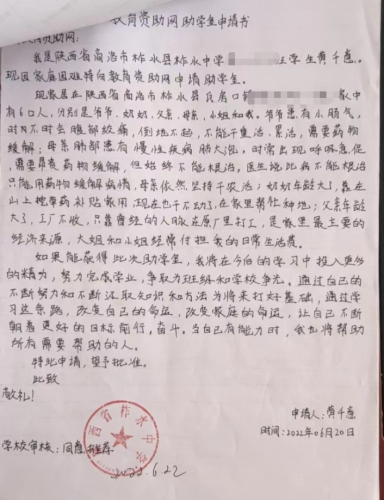 教育资助网助学生申请书
教育资助网：
我是陕西省商洛市柞水县柞水中学 学生
现因家庭困难特向教育资助网申请助学生。
现家居在陕西省商洛市柞水县 家中
有6口人，分别是爷爷、奶奶、父亲、母亲、小姐和我。爷爷患有小肠气，
时不时会腹部绞痛，倒地不起，不能干重活、累活，需要药物
缓解；母亲肺部患有慢性疾病肺大泡，时常出现呼吸急促
需要靠药物缓解，但始终不能根治，医生说此病不能根治
只能用药物缓解病情，母亲依然坚持干农活；奶奶年龄大了，靠在
山上挖草药补贴家用，现在也干不动了，在家里帮忙种地；父亲年龄
大了，工厂不收，只靠曾经的人脉在原厂里打工，是家里最主要的
经济来源，大姐和小姐经常付担我的日常生活费。
如果能获得此次助学生，我将在今后的学习中投入更多
的精力，努力完成学业，争取为班级和学校争光。通过自己的
不断努力和不断汲取知识和方法为将来打好基础，通过学
习这条路，改变自己的命运，改变家庭的命运，让自己不断
朝着更好的目标前行，奋斗。当自己有能力时，我也将帮助
所有需要帮助的人。
特此申请，望予批准。
此致
敬礼！
申请人：
时间：2022年06月20日
学校审核：同意推荐
2022.6.22
陕西省柞水中学